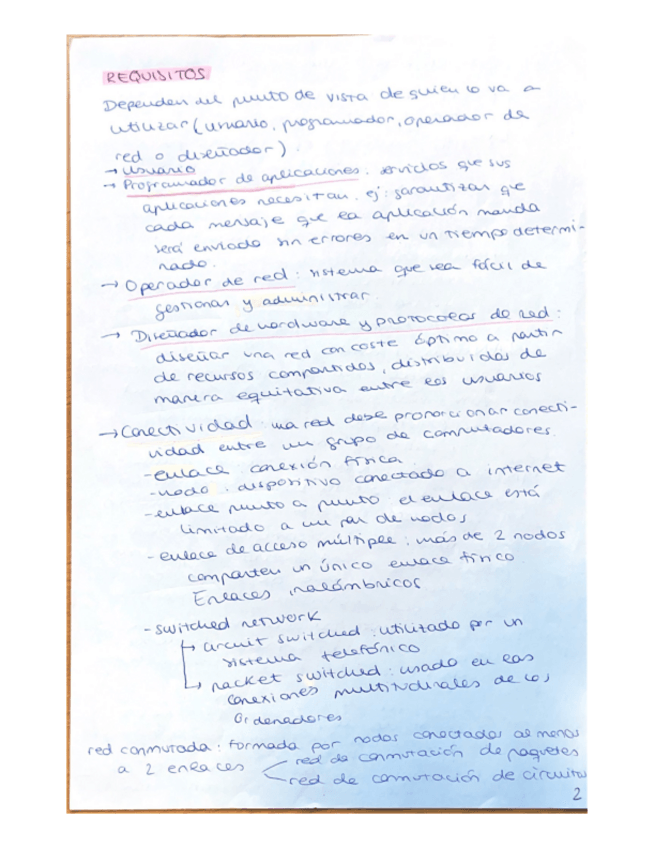 REQUISITOS
Dependen del punto de vista de quien lo va a
utilizar (usuario, programador, operador de
red o diseñador).
→ Usuario
→ Programador de aplicaciones: servicios que sus
aplicaciones necesitan. ej: garantizar que
cada mensaje que la aplicación manda
será enviado sin errores en un tiempo determi-
nado.
→ Operador de red: sistema que sea fácil de
gestionar y administrar.
→ Diseñador de hardware y protocolos de red:
diseñar una red con coste óptimo a partir
de recursos compartidos, distribuidos de
manera equitativa entre los usuarios
→ Conectividad: una red debe proporcionar conecti-
vidad entre un grupo de computadores.
- enlace: conexión física
- nodo: dispositivo conectado a internet
- enlace punto a punto: el enlace está
limitado a un par de nodos
- enlace de acceso múltiple: más de 2 nodos
comparten un único enlace físico.
Enlaces inalámbricos
- switched network
↳ circuit switched: utilizado por un
sistema telefónico
↳ packet switched: usado en las
conexiones de los
ordenadores
red conmutada: formada por nodos conectados al menos
a 2 enlaces
red de conmutación de paquetes
red de conmutación de circuitos
2